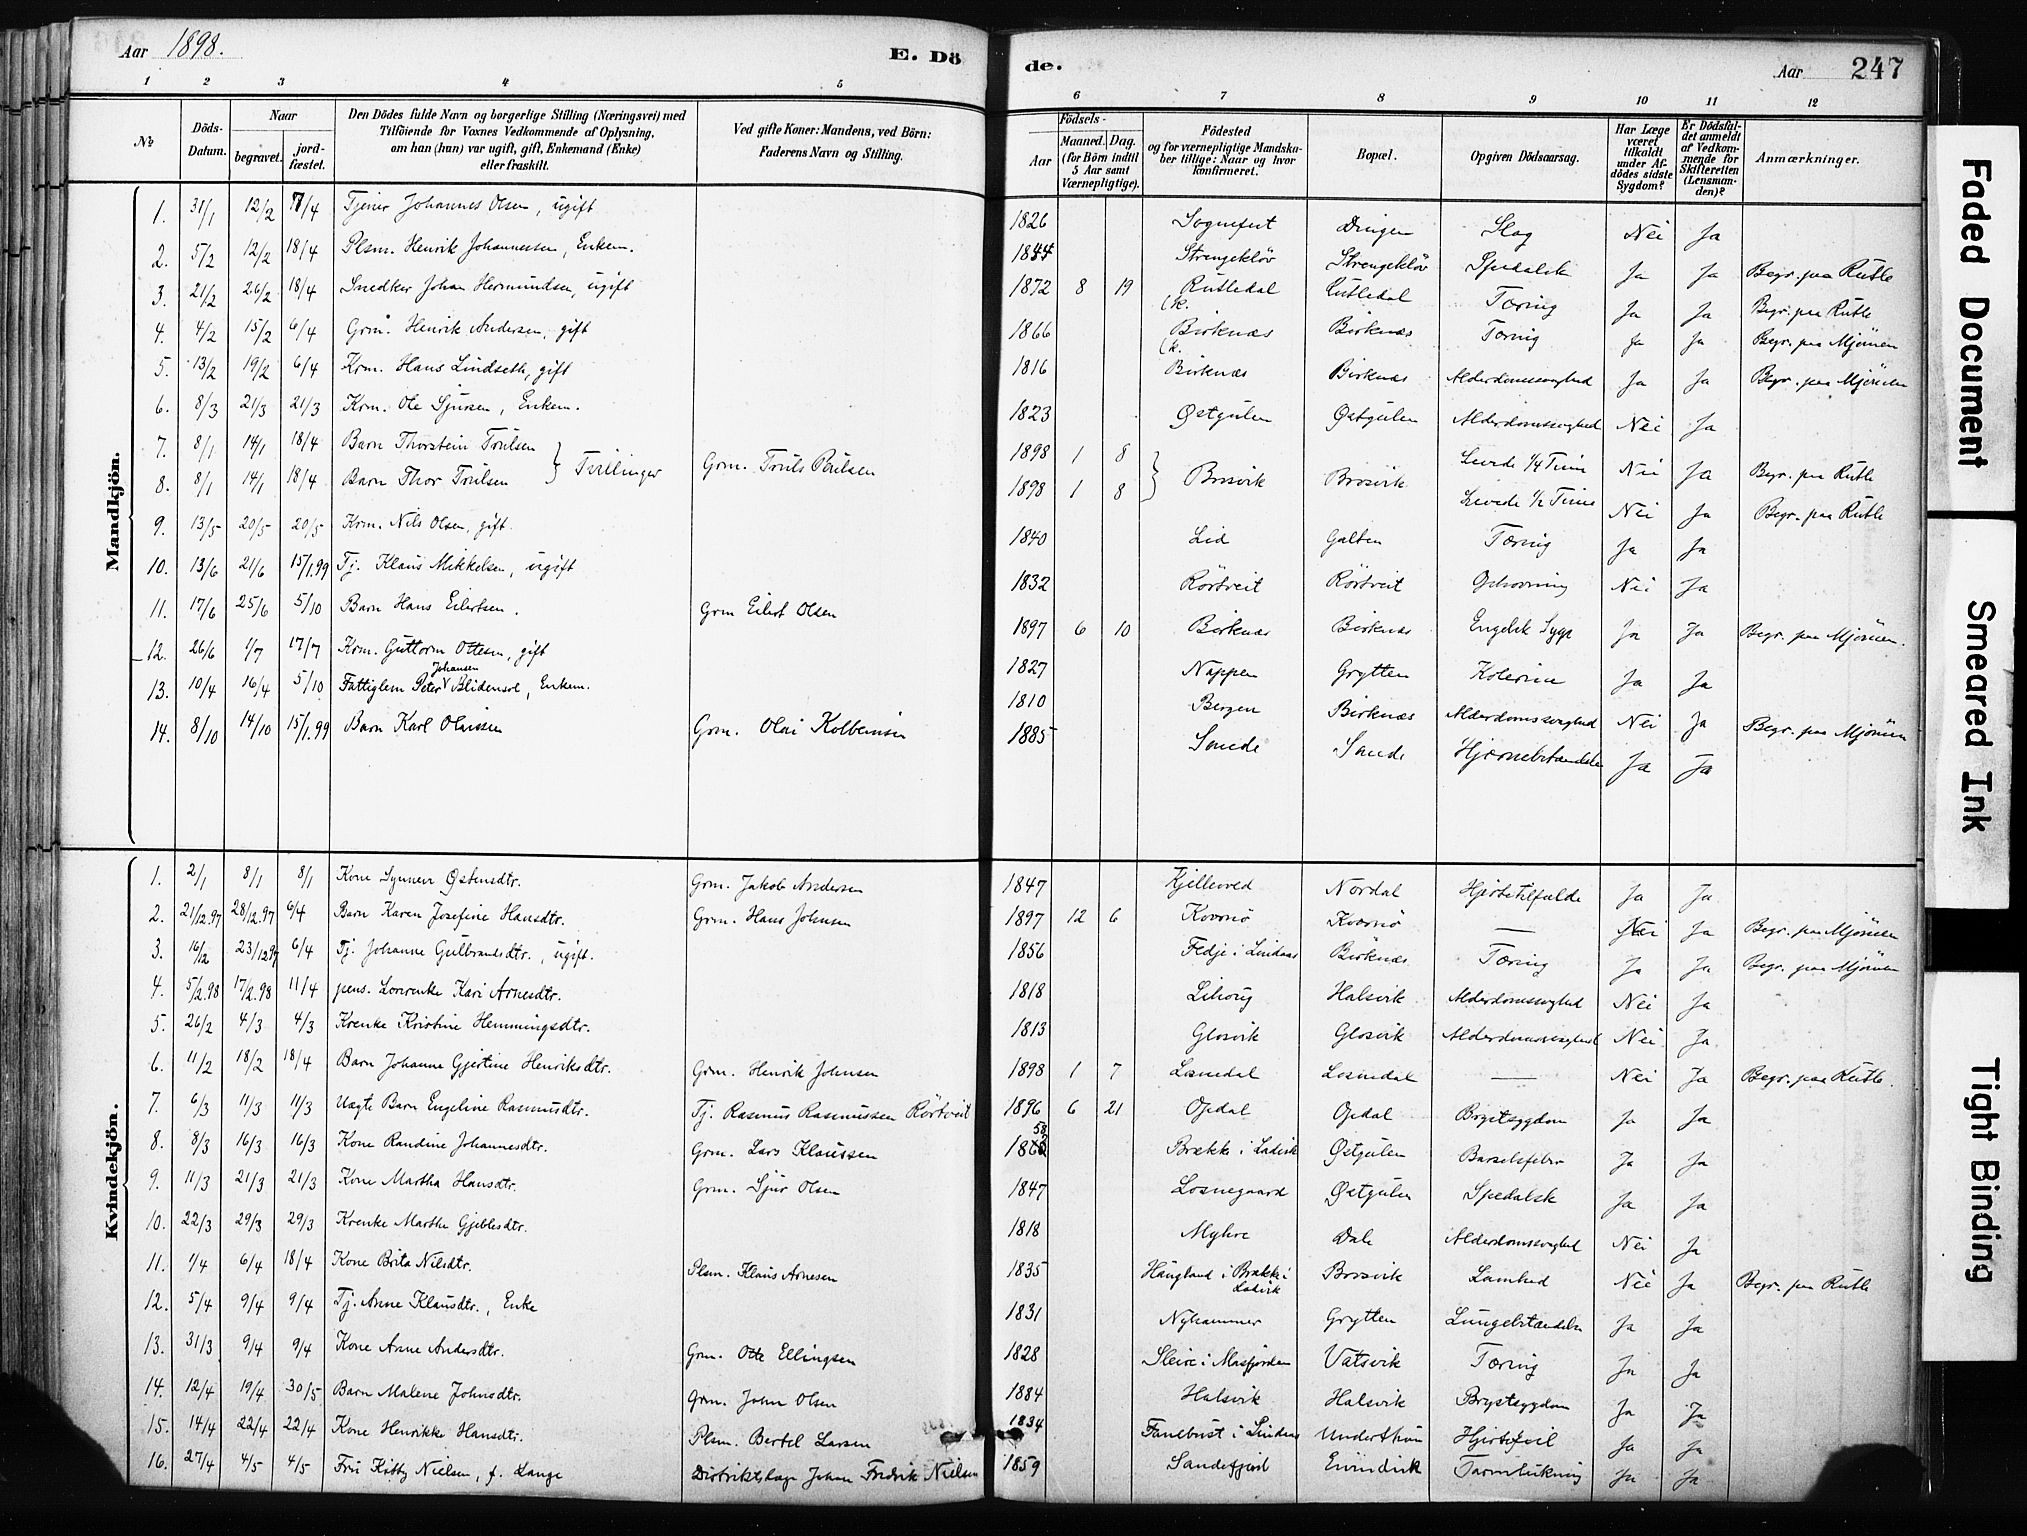 Aar 1898.
E. Dö
de.
Aar 247
1 2 3 4 5 6 7 8 9 10 11 12
No
Döds-Datum.
Naar
begravet.
jord-fæstet.
Den Dödes fulde Navn og borgerlige Stilling (Næringsvei) med
Tilföiende for Voxnes Vedkommende af Oplysning,
om han (hun) var ugift, gift, Enkemand (Enke)
eller fraskilt.
Ved gifte Koner: Mandens, ved Börn:
Faderens Navn og Stilling.
Födsels-
Aar
Maaned. Dag.
(for Börn indtil
5 Aar samt
Værnepligtige).
Födested
og for værnepligtige Mandska-
ber tillige: Naar og hvor
konfirmeret.
Bopæl.
Opgiven Dödsaarsag.
Har Læge
været
tilkaldt
under Af-
dödes sidste
Sygdom?
Er Dödsfal-
det anmeldt
af Vedkom-
mende for
Skifteretten
(Lensman-
den)?
Anmærkninger.
Mandkjön.
1. 31/1 12/2 17/4 Tjener Johannes Olsen, ugift 1826 Sognefest Dingen Slag Nei Ja
2. 5/2 12/2 18/4 Plsm. Henrik Johannessen, Enkem. 1844 Strengekløv Strengekløv Spedalsk Ja Ja Begr. paa Rutle
3. 21/2 26/2 18/4 Snedker Johan Hermundsen, ugift 1872 8 19 Rutledal (k. Rutledal Tæring Ja Ja Begr. paa Rutle
4. 4/2 15/2 6/4 Grm. Henrik Andersen, gift 1866 Birknæs (k. Birknæs Tæring Ja Ja Begr. paa Mjömen
5. 13/2 19/2 6/4 Krm. Hans Lindseth, gift 1816 Birknæs Birknæs Alderdomssvaghed Ja Ja Begr. paa Mjömen
6. 8/3 21/3 21/3 Krm. Ole Sjursen, Enkem. 1823 Østgulen Østgulen Alderdomssvaghed Nei Ja
7. 8/1 14/1 18/4 Barn Thorstein Trulsen } Tvillinger Grm. Truls Poulsen 1898 1 8 } Brosvik Brosvik Levede 1/4 Time Nei Ja Begr. paa Rutle
8. 8/1 14/1 18/4 Barn Thor Trulsen 1898 1 8 Levede 1/2 Time Nei Ja Begr. paa Rutle
9. 13/5 20/5 20/5 Krm. Nils Olsen, gift. 1840 Lid Galten Tæring Ja Ja
10. 13/6 21/6 15/1.99 Tj. Klaus Mikkelsen, ugift 1832 Rörtveit Rörtveit Nei Ja
11. 17/6 25/6 5/10 Barn Hans Eilertsen. Grm Eilert Olsen 1897 6 10 Birknæs Birknæs Engelsk Syge Ja Ja Begr. paa Mjömen.
12. 26/6 1/7 17/7 Krm. Guttorm Ottesen, gift 1827 Nappen Grytten Kolerine Ja Ja
13. 10/4 16/4 5/10 Fattiglem Peter Johansen Blidensol, Enkem. 1810 Bergen Birknæs Alderdomssvaghed Nei Ja Begr. paa Mjömen
14. 8/10 14/10 15/1.99 Barn Karl Olaissen Grm. Olai Kolbeinsen 1885 Sande Sande Hjernebetændelse Ja Ja
Kvindekjön.
1. 2/1 8/1 8/1 Kone Synneve Østensdtr. Grm. Jakob Andersen 1847 Kjellevold Nordal Hjertetilfælde Ja Ja
2. 21/12.97 28/12.97 6/4 Barn Karen Josefine Hansdtr. Grm. Hans Johnsen 1897 12 6 Kversö Kversö — Nei Ja Begr. paa Mjömen
3. 16/12 23/12.97 6/4 Tj. Johanne Gulbrandsdtr., ugift. 1856 Fedje i Lindaas Birknæs Tæring Ja Ja Begr. paa Mjömen
4. 5/2.98 17/2.98 11/4 pens. Lærerenke Kari Arnesdtr. 1818 Lihoug Halsvik Alderdomssvaghed Nei Ja
5. 26/2 4/3 4/3 Krenke Kristine Hemmingsdtr. 1813 Glosvik Glosvik Alderdomssvaghed Nei Ja
6. 11/2 18/2 18/4 Barn Johanne Gjertine Henriksdtr. Grm. Henrik Johnsen 1898 1 7 Losnedal Losnedal — Nei Ja Begr. paa Rutle.
7. 6/3 11/3 11/3 Uægte Barn Engeline Rasmusdtr. Tj. Rasmus Rasmussen Rörtveit 1896 6 21 Opdal Opdal Brystsygdom Ja Ja
8. 8/3 16/3 16/3 Kone Randine Johannesdtr. Grm. Lars Klaussen Brække i Ladvik Østgulen Barselfeber Ja Ja
9. 11/3 21/3 21/3 Kone Martha Hansdtr. Grm. Sjur Olsen 1847 Losnegaard Østgulen Spedalsk Ja Ja
10. 22/3 29/3 29/3 Krenke Marthe Gjeblesdtr. 1818 Myhre Dale Alderdomssvaghed Nei Ja
11. 1/4 6/4 18/4 Kone Brita Nilsdtr. Plsm. Klaus Arnesen 1835 Haugland i Brække i Ladvik Brosvik Lamhed Nei Ja Begr. paa Rutle
12. 5/4 9/4 9/4 Tj. Anne Klausdtr., Enke 1831 Nyhammer Grytten Lungebetændelse Ja Ja
13. 31/3 9/4 9/4 Kone Anne Andersdtr. Grm. Otte Ellingsen 1828 Sleire i Masfjorden Vatsvik Tæring Ja Ja
14. 12/4 19/4 30/5 Barn Malene Johnsdtr. Grm. John Olsen 1884 Halsvik Halsvik Brystsygdom Ja Ja
15. 14/4 22/4 22/4 Kone Henrikke Hansdtr. Plsm. Bertel Larsen 1834 Fanebust i Lindaas Underthun Hjertefeil Ja Ja
16. 27/4 4/5 4/5 Fru Kitty Nielsen, f. Lange Distriktslæge Johan Fredrik Nielsen 1859 Sandefjord Eivindvik Tarmlukning Ja Ja
Faded Document
Smeared Ink
Tight Binding